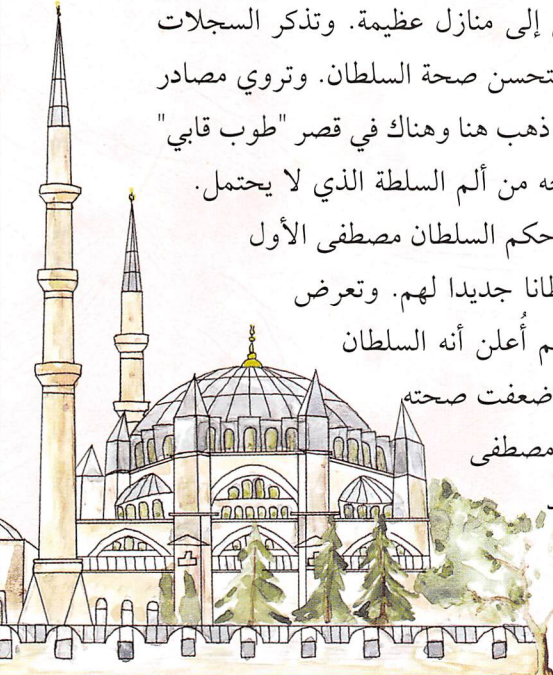 إلى منازل عظيمة. وتذكر السجلات
تحسن صحة السلطان. وتروي مصادر
ذهب هنا وهناك في قصر "طوب قابي"
من ألم السلطة الذي لا يحتمل.
حكم السلطان مصطفى الأول
جديدا لهم. وتعرض
أُعلن أنه السلطان
ضعفت صحته
مصطفى